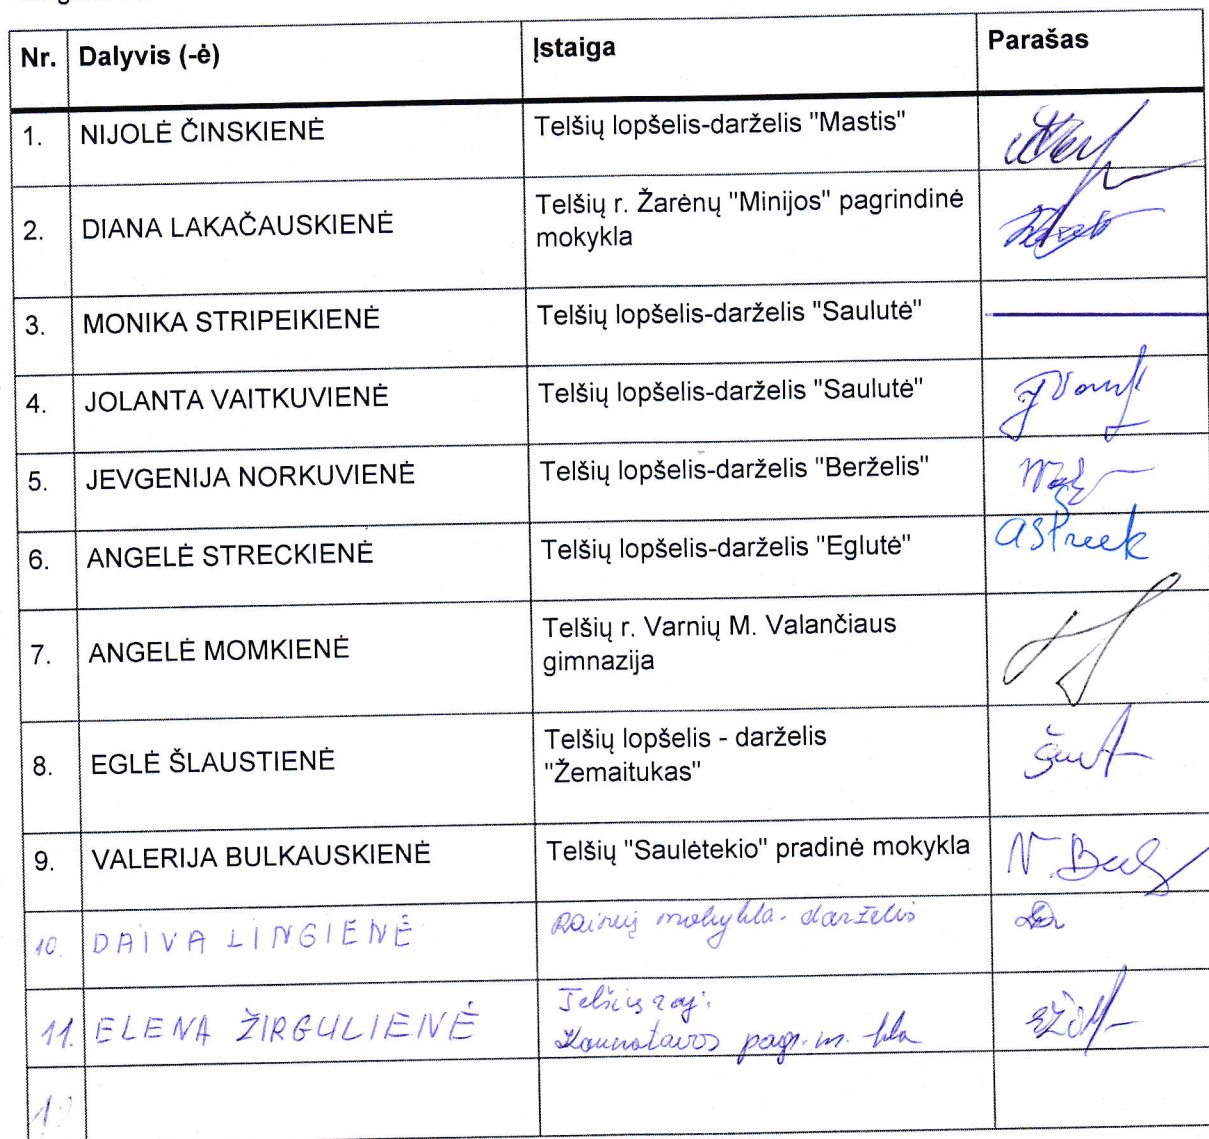 Nr. Dalyvis (-ė) Įstaiga Parašas
1. NIJOLĖ ČINSKIENĖ Telšių lopšelis-darželis "Mastis"
2. DIANA LAKAČAUSKIENĖ Telšių r. Žarėnų "Minijos" pagrindinė
mokykla
3. MONIKA STRIPEIKIENĖ Telšių lopšelis-darželis "Saulutė"
4. JOLANTA VAITKUVIENĖ Telšių lopšelis-darželis "Saulutė"
5. JEVGENIJA NORKUVIENĖ Telšių lopšelis-darželis "Berželis"
6. ANGELĖ STRECKIENĖ Telšių lopšelis-darželis "Eglutė"
7. ANGELĖ MOMKIENĖ Telšių r. Varnių M. Valančiaus
gimnazija
8. EGLĖ ŠLAUSTIENĖ Telšių lopšelis - darželis
"Žemaitukas"
9. VALERIJA BULKAUSKIENĖ Telšių "Saulėtekio" pradinė mokykla
10. DAIVA LINGIENĖ Rainių mokykla-darželis
11. ELENA ŽIRGULIENĖ Telšių raj.
Kaunatavos pagr. m-kla